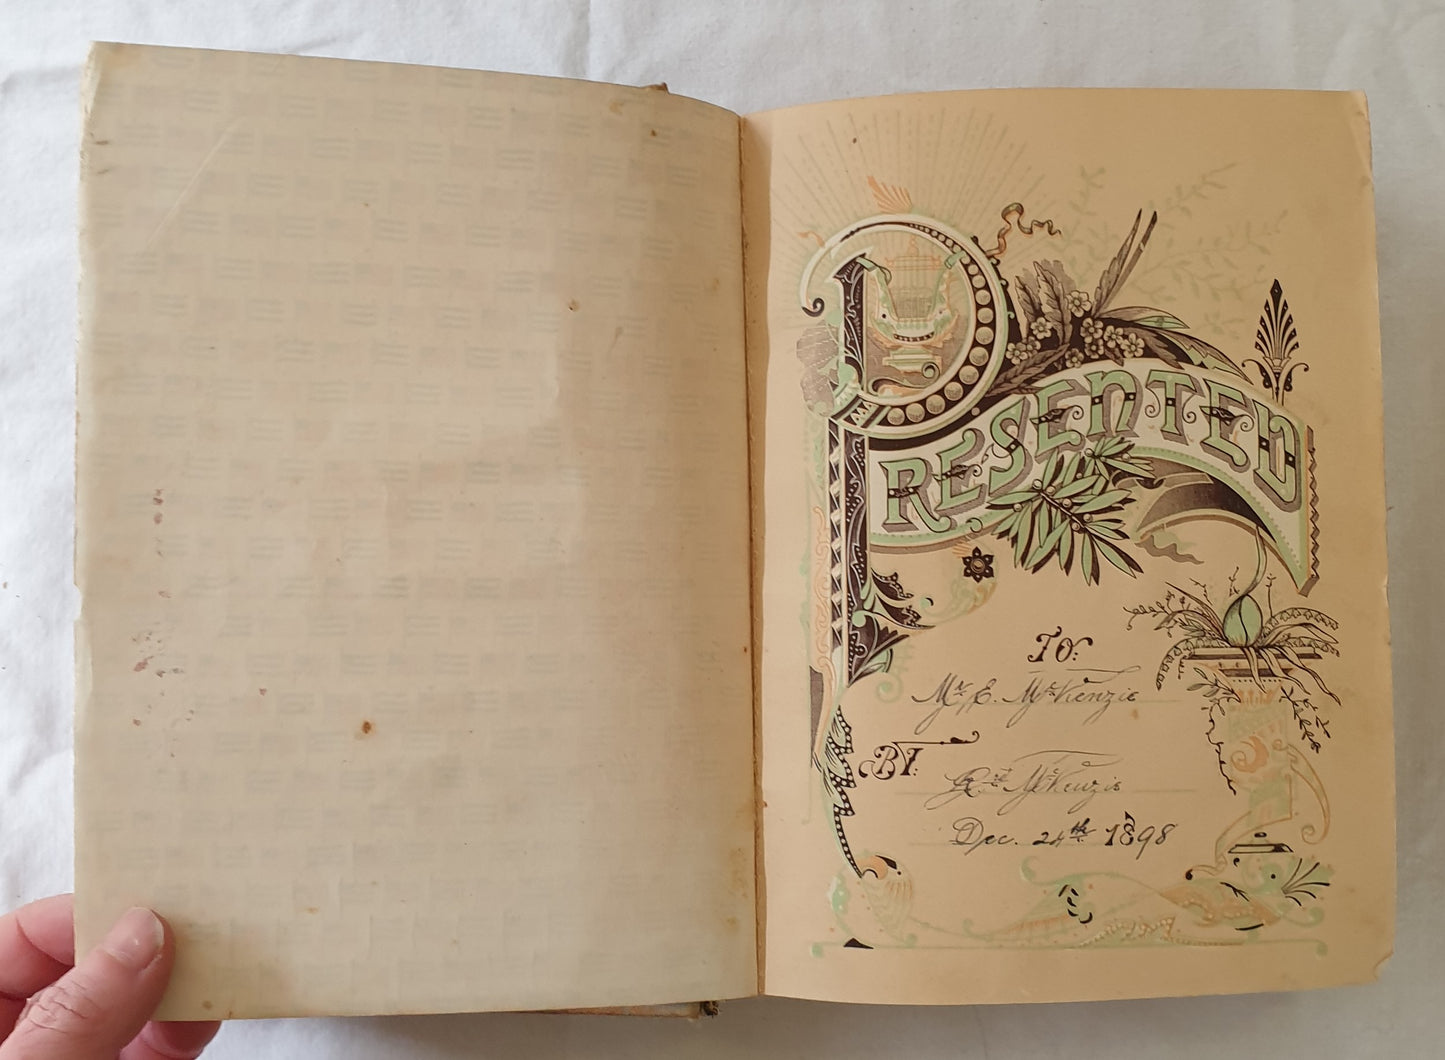 PRESENTED
TO:
Mr. E. McKenzie
BY.
McKenzie
Dec. 24th 1898